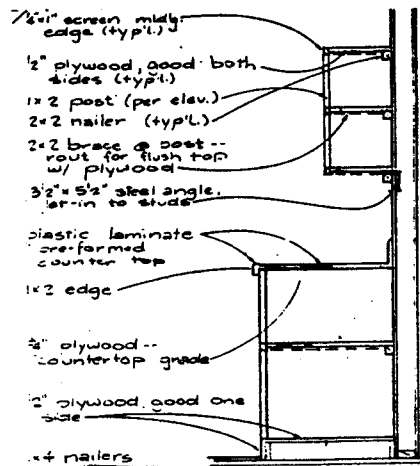 screen mldg.
edge (typ'l.)
1/2" plywood, good both
sides (typ'l.)
1x2 post (per elev.)
2x2 nailer (typ'l.)
2x2 brace @ post --
rout for flush top
w/ plywood
3 1/2" x 5 1/2" steel angle,
let-in to studs
plastic laminate
pre-formed
counter top
1x2 edge
3/4" plywood --
countertop grade
1/2" plywood, good one
side
nailers